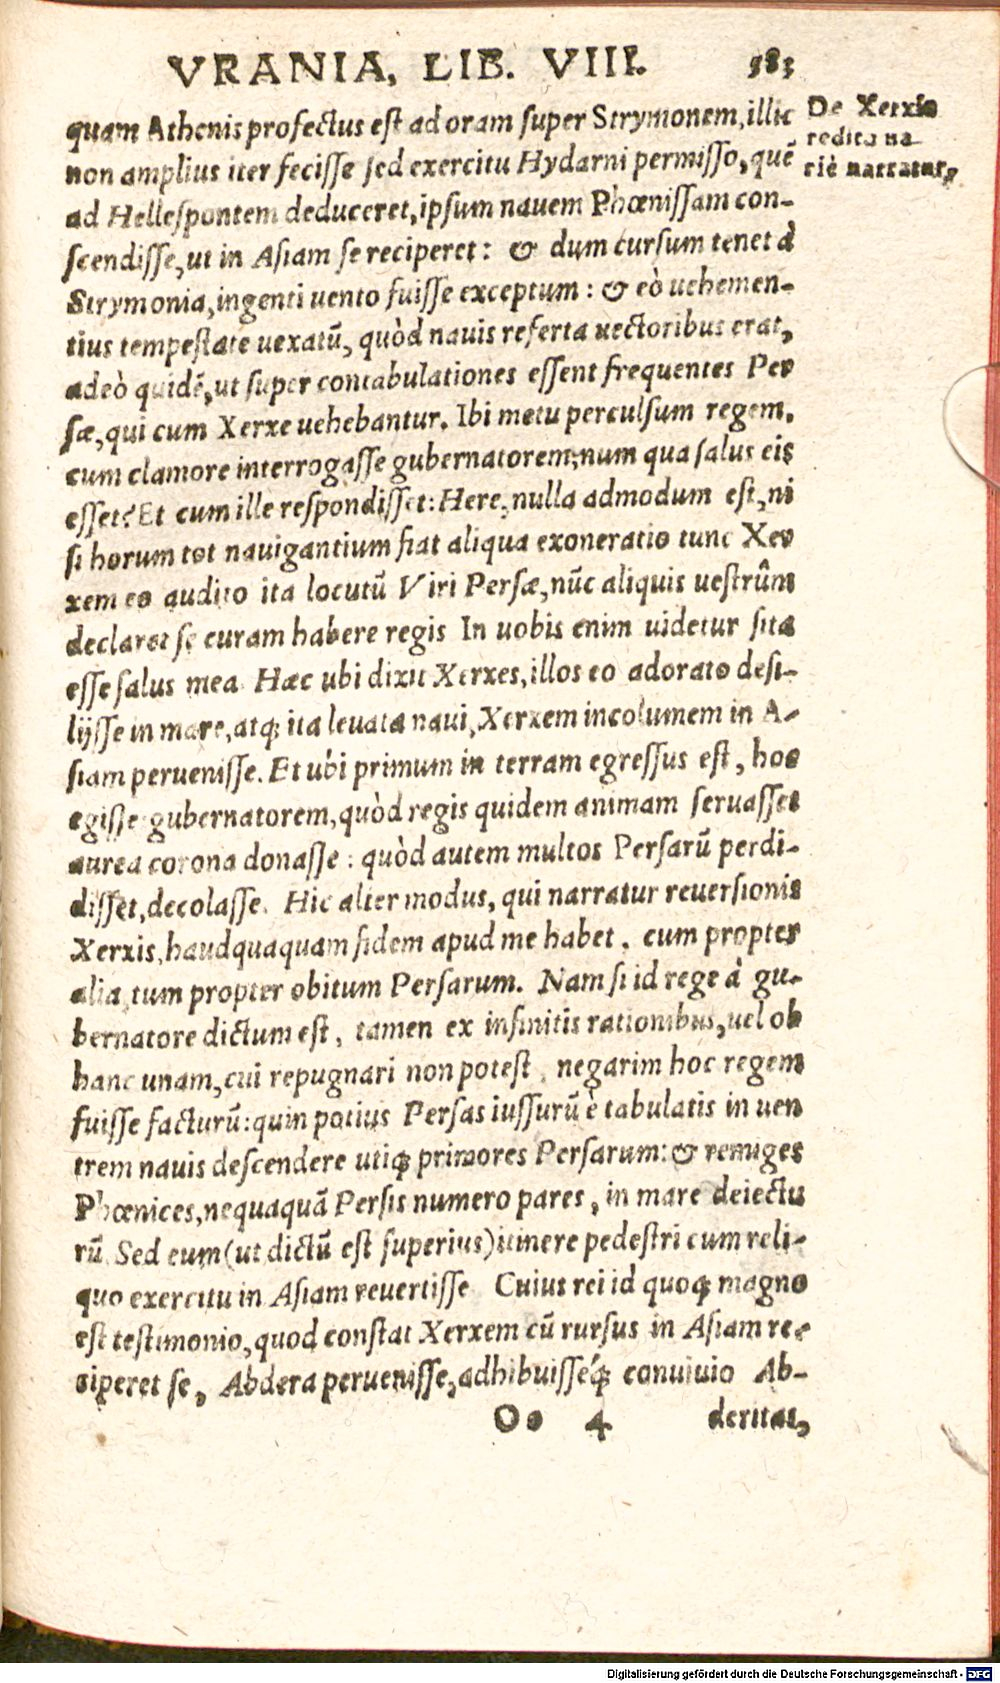 VRANIA, LIB. VIII. 583
De Xerxis
reditu ua-
riè narratur,
quam Athenis profectus est ad oram super Strymonem, illic
non amplius iter fecisse sed exercitu Hydarni permisso, quē
ad Hellespontem deduceret, ipsum nauem Phœnissam con-
scendisse, ut in Asiam se reciperet: & dum cursum tenet à
Strymonia, ingenti uento fuisse exceptum: & eò uehemen-
tius tempestate uexatū, quòd nauis referta uectoribus erat,
adeò quidē, ut super contabulationes essent frequentes Per
sæ, qui cum Xerxe uehebantur. Ibi metu perculsum regem,
cum clamore interrogasse gubernatorem, num qua salus eis
esset? Et cum ille respondisset: Here, nulla admodum est, ni
si horum tot nauigantium fiat aliqua exoneratio tunc Xer
xem eo audito ita locutū Viri Persæ, nūc aliquis uestrûm
declaret se curam habere regis In uobis enim uidetur sita
esse salus mea Hæc ubi dixit Xerxes, illos eo adorato desi-
lijsse in mare, atq; ita leuata naui, Xerxem incolumem in A-
siam peruenisse. Et ubi primum in terram egressus est, hoc
egisse gubernatorem, quòd regis quidem animam seruasset
aurea corona donasse: quòd autem multos Persarū perdi-
disset, decolasse. Hic alter modus, qui narratur reuersionis
Xerxis, haudquaquam fidem apud me habet, cum propter
alia, tum propter obitum Persarum. Nam si id rege à gu-
bernatore dictum est, tamen ex infinitis rationibus, uel ob
hanc unam, cui repugnari non potest, negarim hoc regem
fuisse facturū: quin potius Persas iussurū è tabulatis in uen
trem nauis descendere utiq; primores Persarum: & remiges
Phœnices, nequaquā Persis numero pares, in mare deiectu
rū Sed eum (ut dictū est superius) itinere pedestri cum reli-
quo exercitu in Asiam reuertisse Cuius rei id quoq; magno
est testimonio, quod constat Xerxem cū rursus in Asiam re-
ciperet se, Abdera peruenisse, adhibuisséq; conuiuio Ab-
Oo 4 deritas,
Digitalisierung gefördert durch die Deutsche Forschungsgemeinschaft - DFG